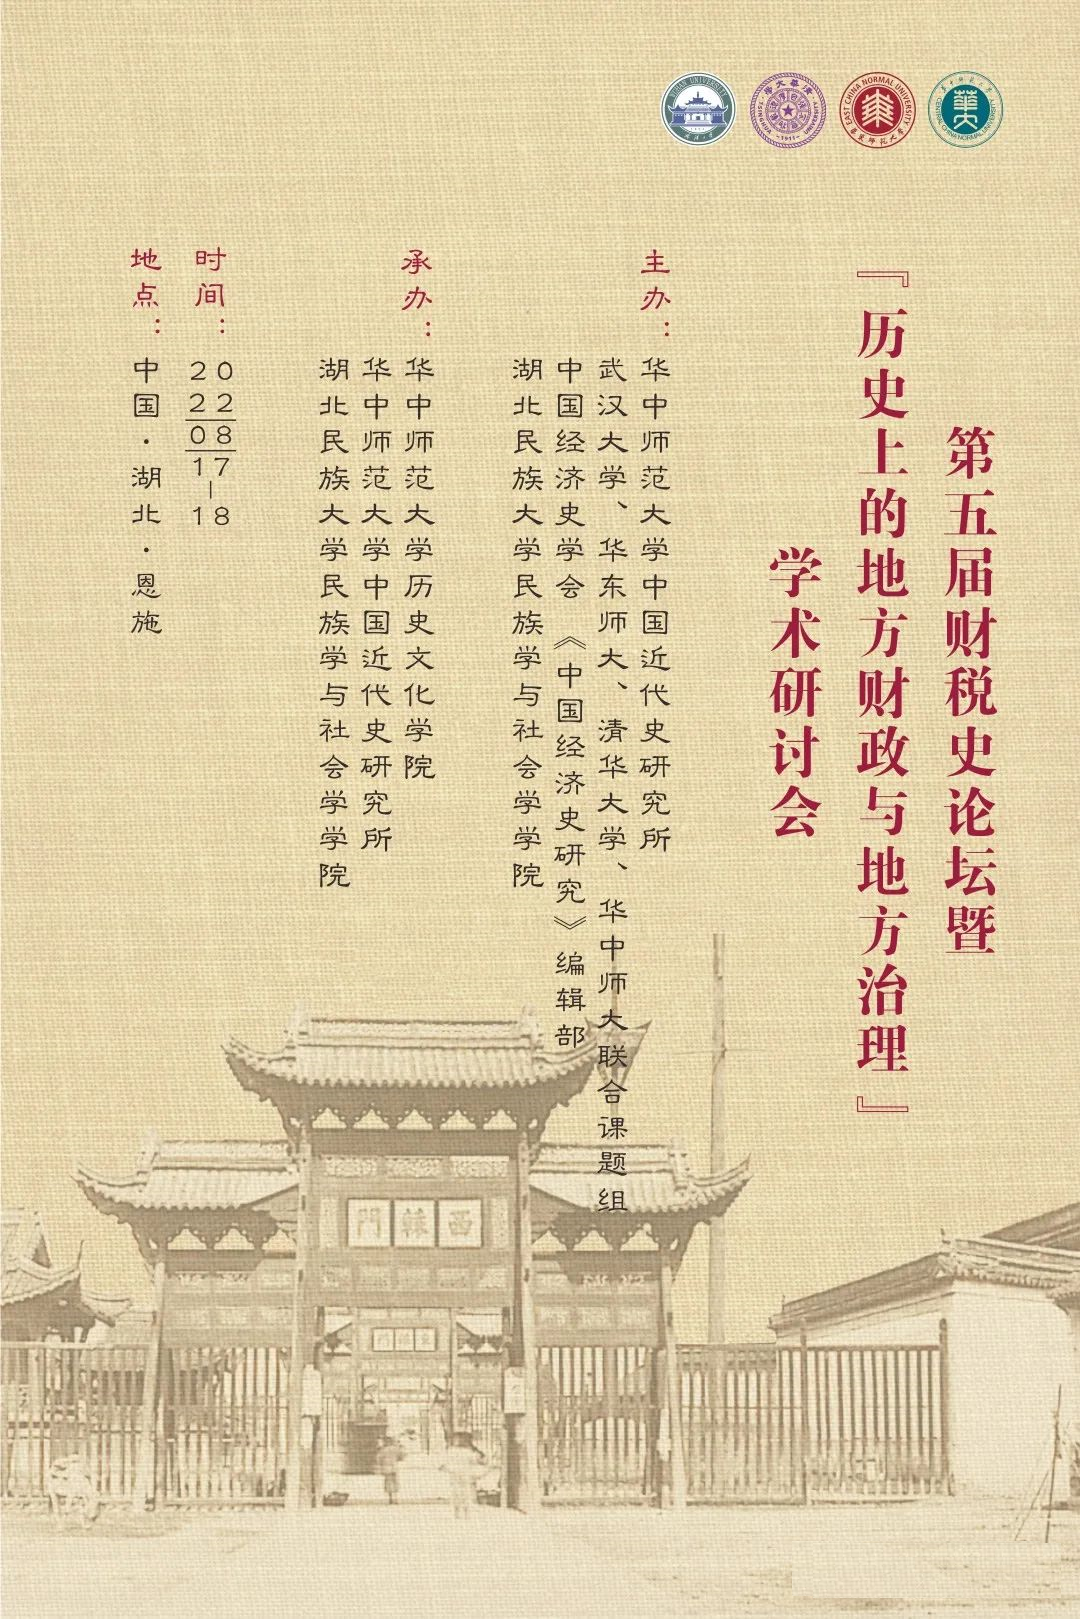 WUHAN UNIVERSITY
TSINGHUA UNIVERSITY
—1911—
EAST CHINA NORMAL UNIVERSITY
华东师范大学
CENTRAL CHINA NORMAL UNIVERSITY
第五届财税史论坛暨
『历史上的地方财政与地方治理』
学术研讨会
主办：华中师范大学中国近代史研究所
武汉大学、华东师大、清华大学、华中师大联合课题组
中国经济史学会 《中国经济史研究》编辑部
湖北民族大学民族学与社会学学院
承办：华中师范大学历史文化学院
华中师范大学中国近代史研究所
湖北民族大学民族学与社会学学院
时间：
20
22
08
17
|
18
地点：中国·湖北·恩施
門轅西